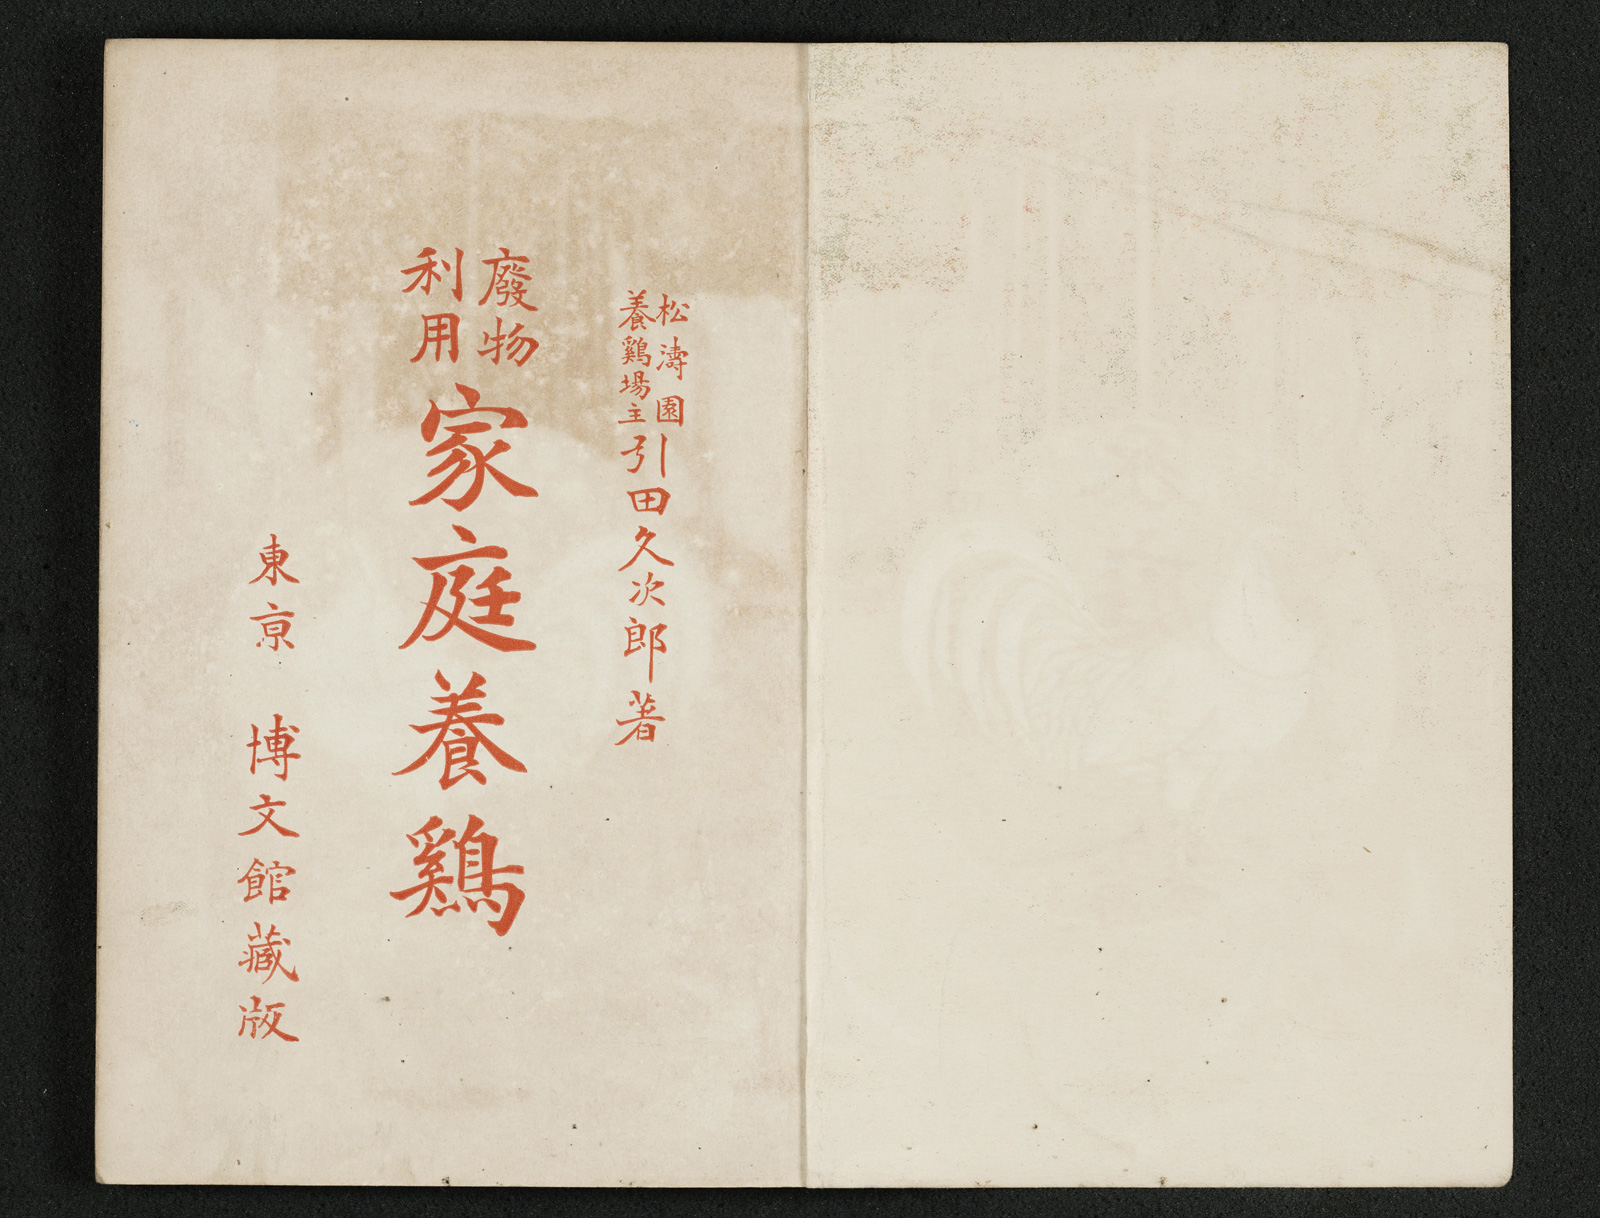 松濤園
養鷄場主
引田久次郎著
廢物
利用
家庭養鷄
東京 博文館藏版